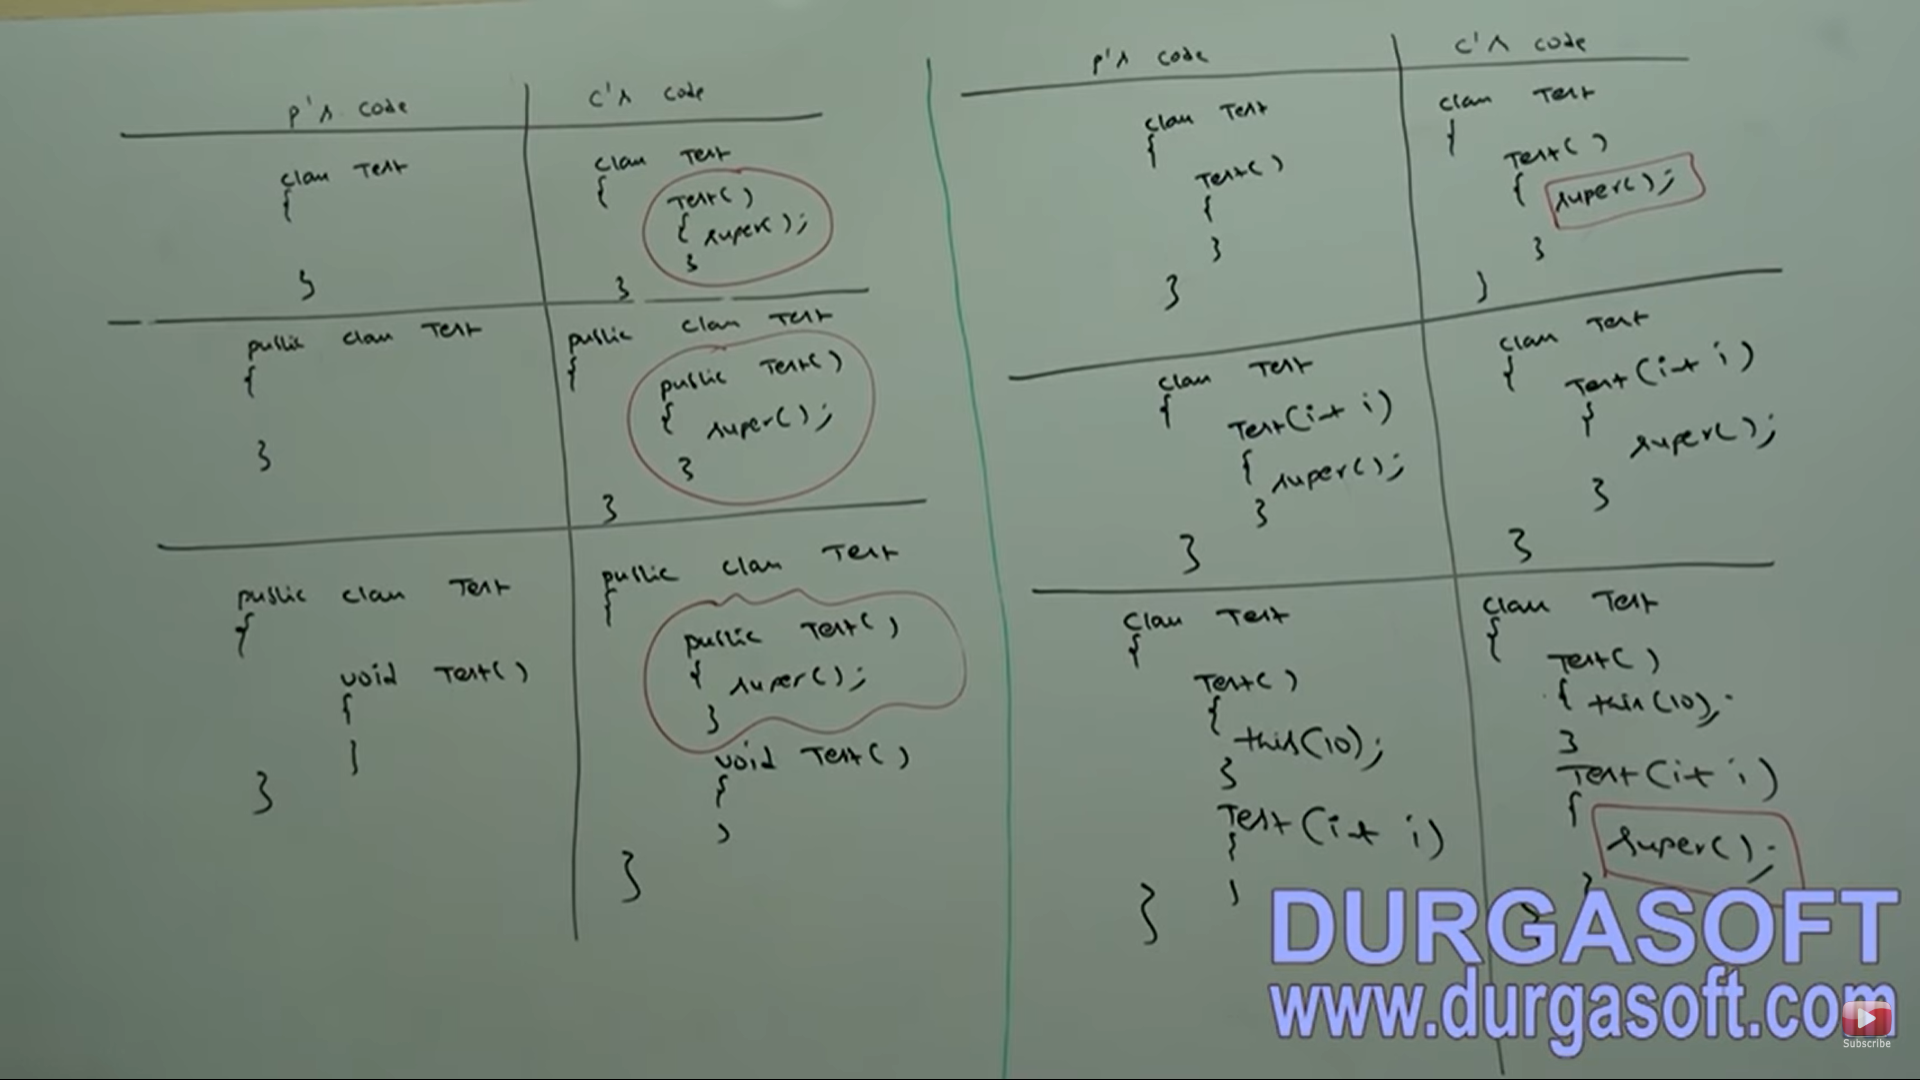 p's code
c's code
class Test
{
}
class Test
{
Test()
{ super();
}
}
public class Test
{
}
public class Test
{
public Test()
{
super();
}
}
public class Test
{
void Test()
{
}
}
public class Test
{
public Test()
{ super();
}
void Test()
{
}
}
p's code
c's code
class Test
{
Test()
{
}
}
class Test
{
Test()
{ super();
}
}
class Test
{
Test(int i)
{ super();
}
}
class Test
{
Test(int i)
{
super();
}
}
class Test
{
Test()
{
this(10);
}
Test(int i)
{
}
}
class Test
{
Test()
{ this(10);
}
Test(int i)
{
super();
}
}
DURGASOFT
www.durgasoft.com
Subscribe